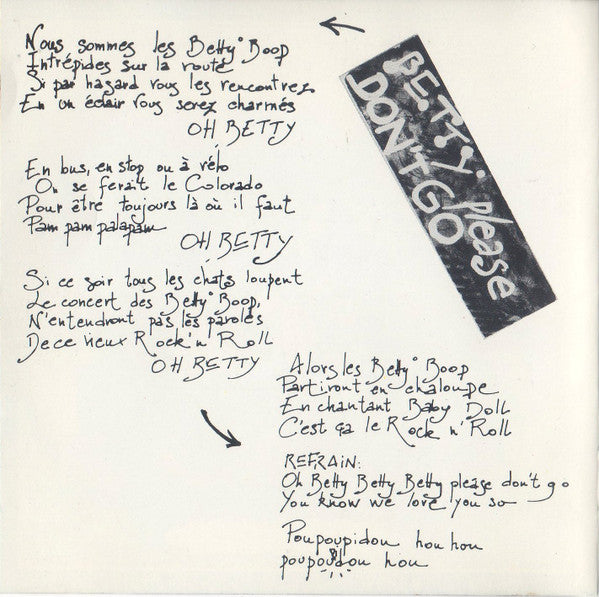 Nous sommes les Betty Boop
Intrépides sur la route
Si par hazard vous les rencontrez
En un éclair vous serez charmés
OH BETTY
En bus, en stop ou à vélo
On se ferait le Colorado
Pour être toujours là où il faut
Pam pam palapam
OH BETTY
Si ce soir tous les chats loupent
Le concert des Betty Boop,
N'entendront pas les paroles
De ce vieux Rock'n' Roll
OH BETTY
Alors les Betty Boop
Partiront en chaloupe
En chantant Baby Doll
C'est ça le Rock n' Roll
REFRAIN:
Oh Betty Betty Betty please don't go
You know we love you so
Poupoupidou hou hou
poupoupidou hou
BETTY please
DON'T GO